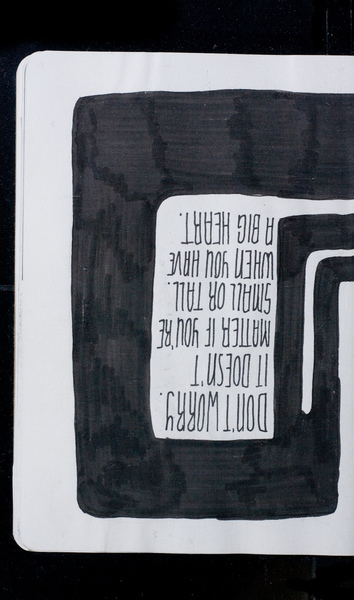 DON'T WORRY.
IT DOESN'T
MATTER IF YOU'RE
SMALL OR TALL.
WHEN YOU HAVE
A BIG HEART.